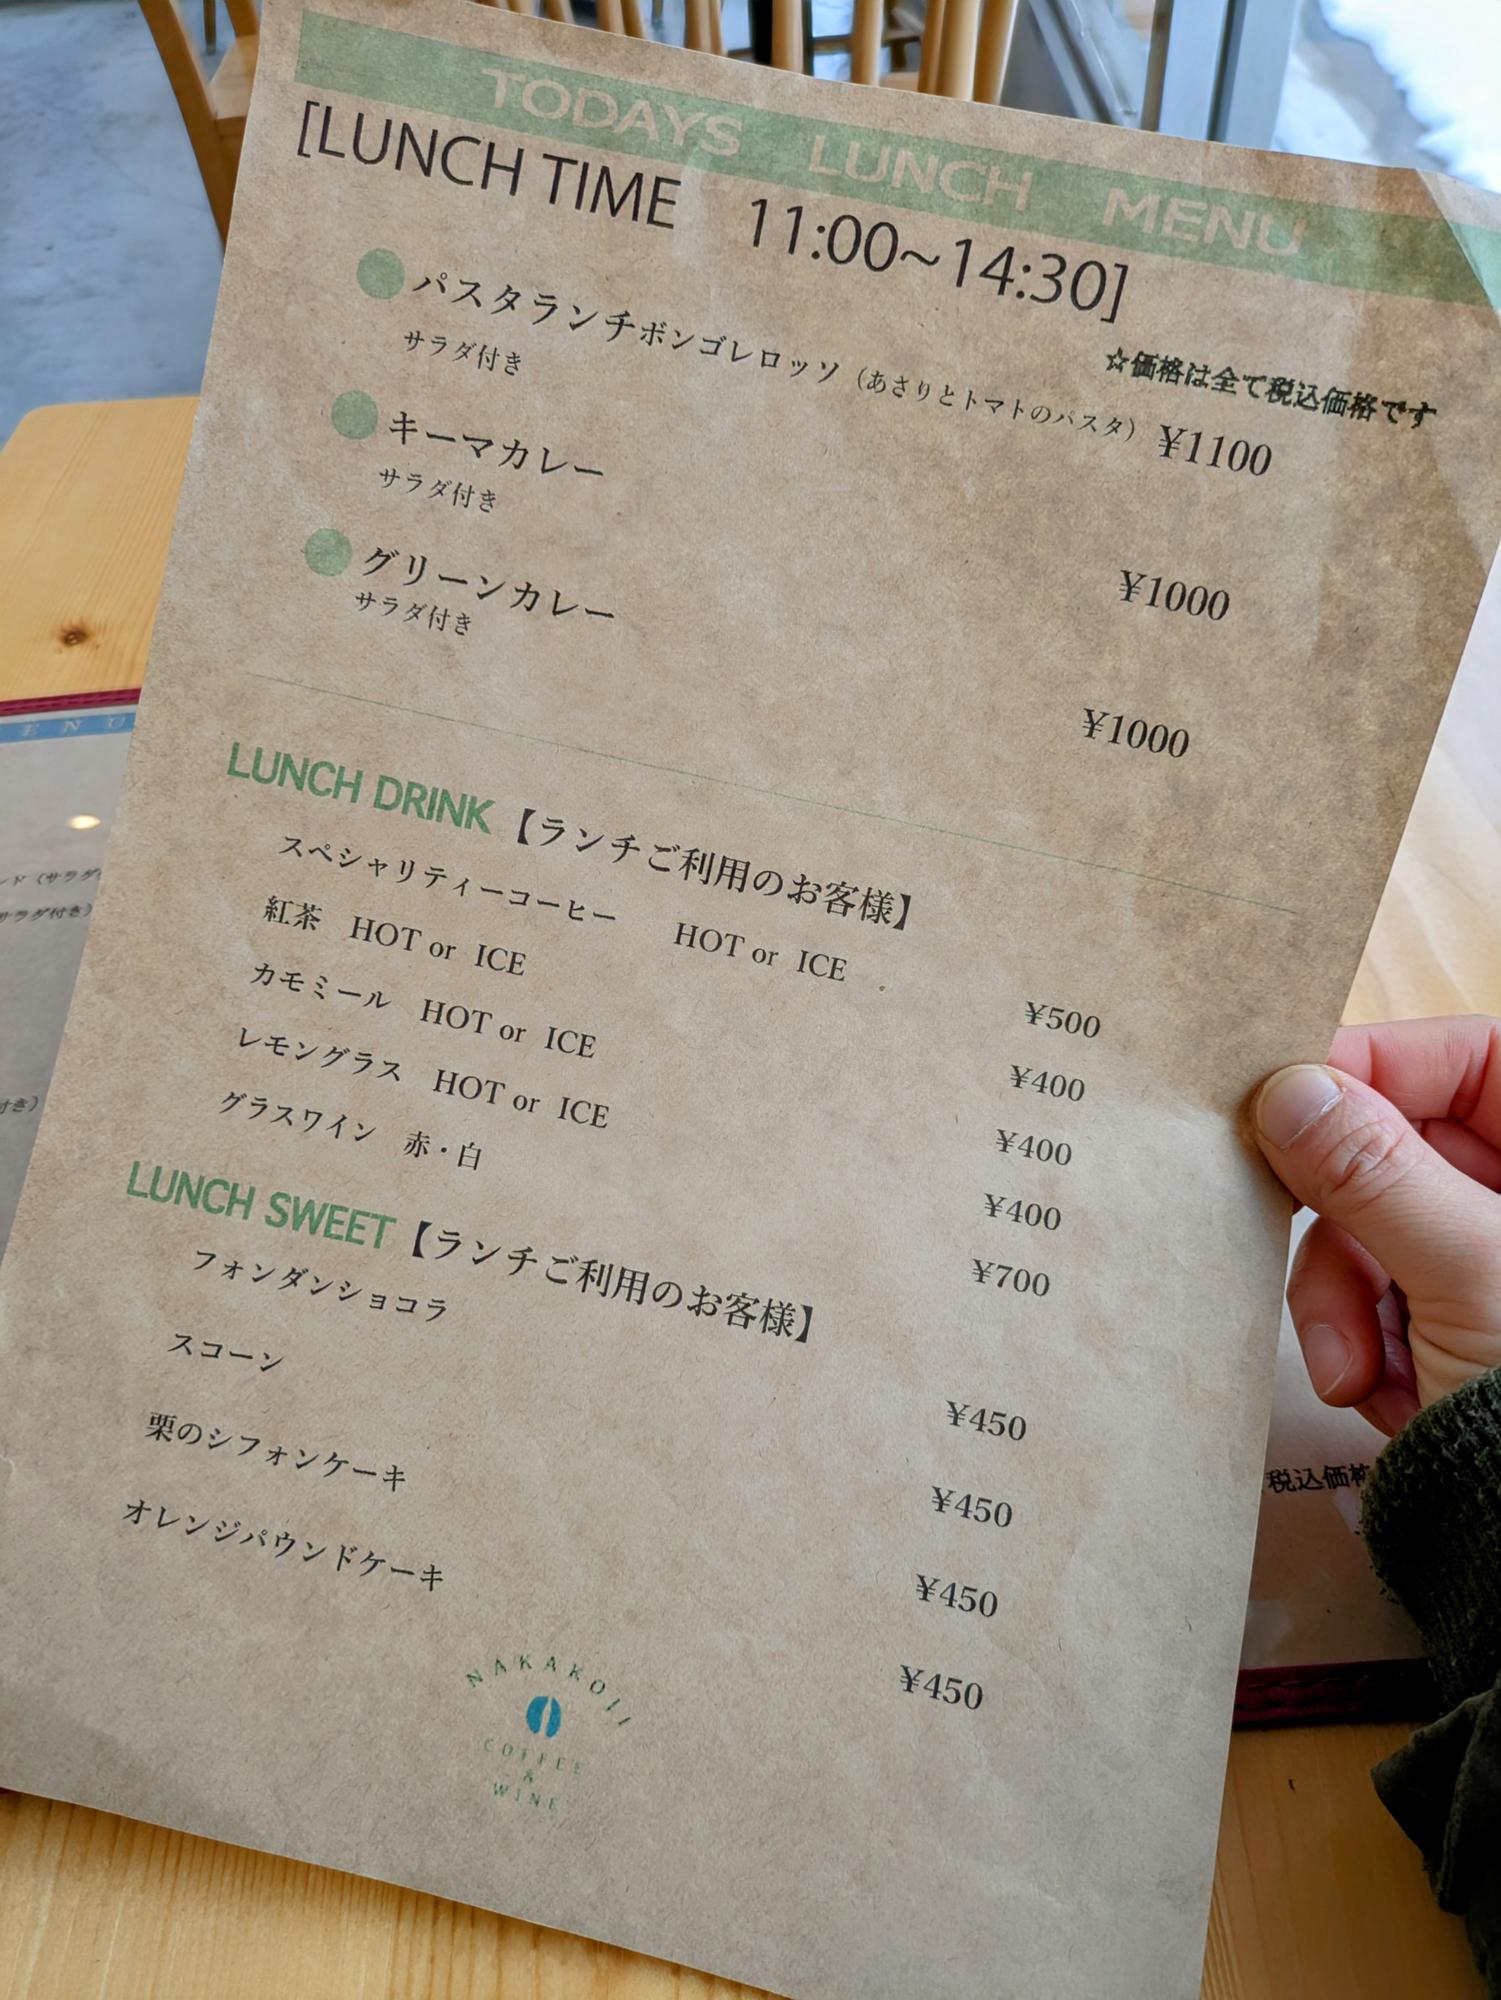 TODAYS LUNCH MENU
[LUNCH TIME 11:00~14:30]
☆価格は全て税込価格です
パスタランチボンゴレロッソ（あさりとトマトのパスタ） ¥1100
サラダ付き
キーマカレー ¥1000
サラダ付き
グリーンカレー ¥1000
サラダ付き
LUNCH DRINK【ランチご利用のお客様】
スペシャリティーコーヒー HOT or ICE ¥500
紅茶 HOT or ICE ¥400
カモミール HOT or ICE ¥400
レモングラス HOT or ICE ¥400
グラスワイン 赤・白 ¥700
LUNCH SWEET【ランチご利用のお客様】
フォンダンショコラ ¥450
スコーン ¥450
栗のシフォンケーキ ¥450
オレンジパウンドケーキ ¥450
COFFEE
&
WINE
ENU
サラダ付き）
付き）
税込価格